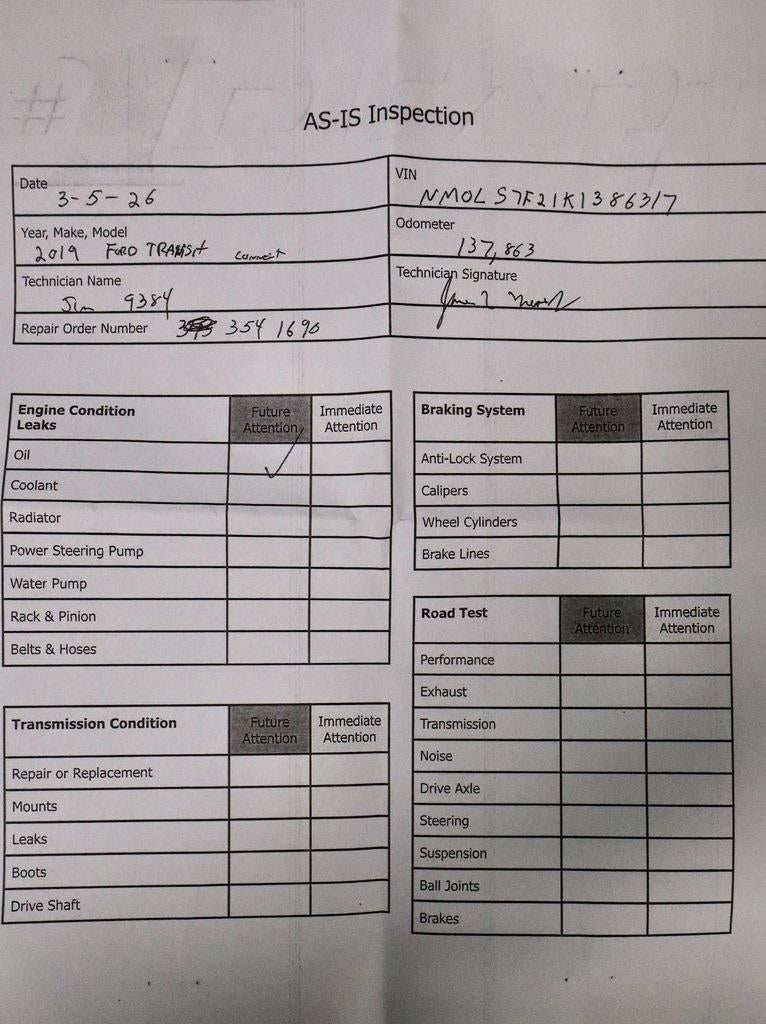 AS-IS Inspection
Date
3-5-26
VIN
NM0LS7F21K1386317
Year, Make, Model
2019 FORD TRANSit connect
Odometer
137,863
Technician Name
Jim 9384
Technician Signature
Repair Order Number 354 1690
Engine Condition Leaks Future Attention Immediate Attention
Oil
Coolant
Radiator
Power Steering Pump
Water Pump
Rack & Pinion
Belts & Hoses
Transmission Condition Future Attention Immediate Attention
Repair or Replacement
Mounts
Leaks
Boots
Drive Shaft
Braking System Future Attention Immediate Attention
Anti-Lock System
Calipers
Wheel Cylinders
Brake Lines
Road Test Future Attention Immediate Attention
Performance
Exhaust
Transmission
Noise
Drive Axle
Steering
Suspension
Ball Joints
Brakes